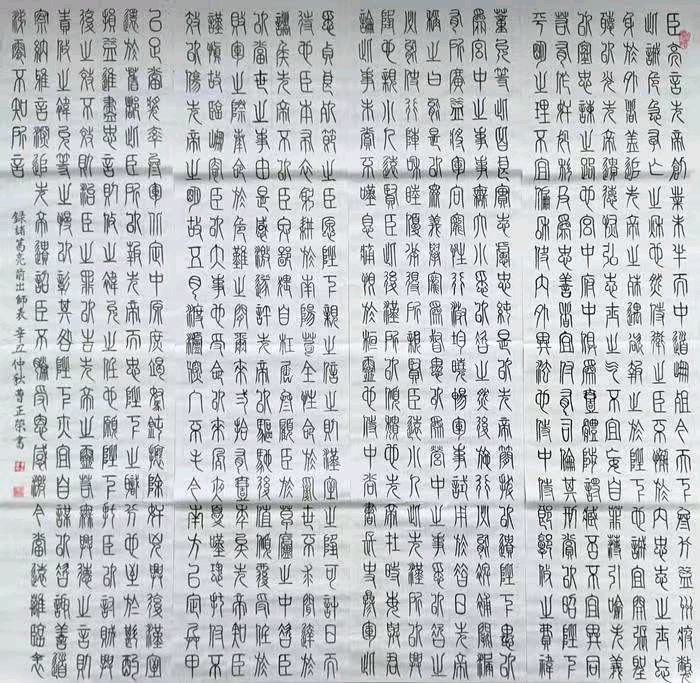 臣亮言先帝創業未半而中道崩殂今天下三分益州疲弊
此誠危急存亡之秋也然侍衛之臣不懈於內忠志之士忘
身於外者蓋追先帝之殊遇欲報之於陛下也誠宜開張聖
聽以光先帝遺德恢弘志士之氣不宜妄自菲薄引喻失義
以塞忠諫之路也宮中府中俱為一體陟罰臧否不宜異同
若有作奸犯科及為忠善者宜付有司論其刑賞以昭陛下
平明之理不宜偏私使內外異法也侍中侍郎郭攸之費禕
董允等此皆良實志慮忠純是以先帝簡拔以遺陛下愚
以為宮中之事事無大小悉以咨之然後施行必能裨補闕漏
有所廣益將軍向寵性行淑均曉暢軍事試用於昔日先帝
稱之曰能是以眾議舉寵為督愚以為營中之事悉以咨之
必能使行陣和睦優劣得所也親賢臣遠小人此先漢所以興
隆也親小人遠賢臣此後漢所以傾頹也先帝在時每與臣
論此事未嘗不嘆息痛恨於桓靈也侍中尚書長史參軍此
悉貞良死節之臣也願陛下親之信之則漢室之隆可計日而
待也臣本布衣躬耕於南陽苟全性命於亂世不求聞達於
諸侯先帝不以臣卑鄙猥自枉屈三顧臣於草廬之中咨臣
以當世之事由是感激遂許先帝以驅馳後值傾覆受任於
敗軍之際奉命於危難之間爾來二十有一年矣先帝知臣
謹慎故臨崩寄臣以大事也受命以來夙夜憂嘆恐託付不
效以傷先帝之明故五月渡瀘深入不毛今南方已定兵甲
已足當獎率三軍北定中原庶竭駑鈍攘除奸凶興復漢室
還於舊都此臣所以報先帝而忠陛下之職分也至於斟酌
損益進盡忠言則攸之禕允之任也願陛下託臣以討賊興
復之效不效則治臣之罪以告先帝之靈若無興德之言則
責攸之禕允等之慢以彰其咎陛下亦宜自謀以咨諏善道
察納雅言深追先帝遺詔臣不勝受恩感激今當遠離臨表
涕零不知所言
錄諸葛亮前出師表辛丑仲秋曹正榮書